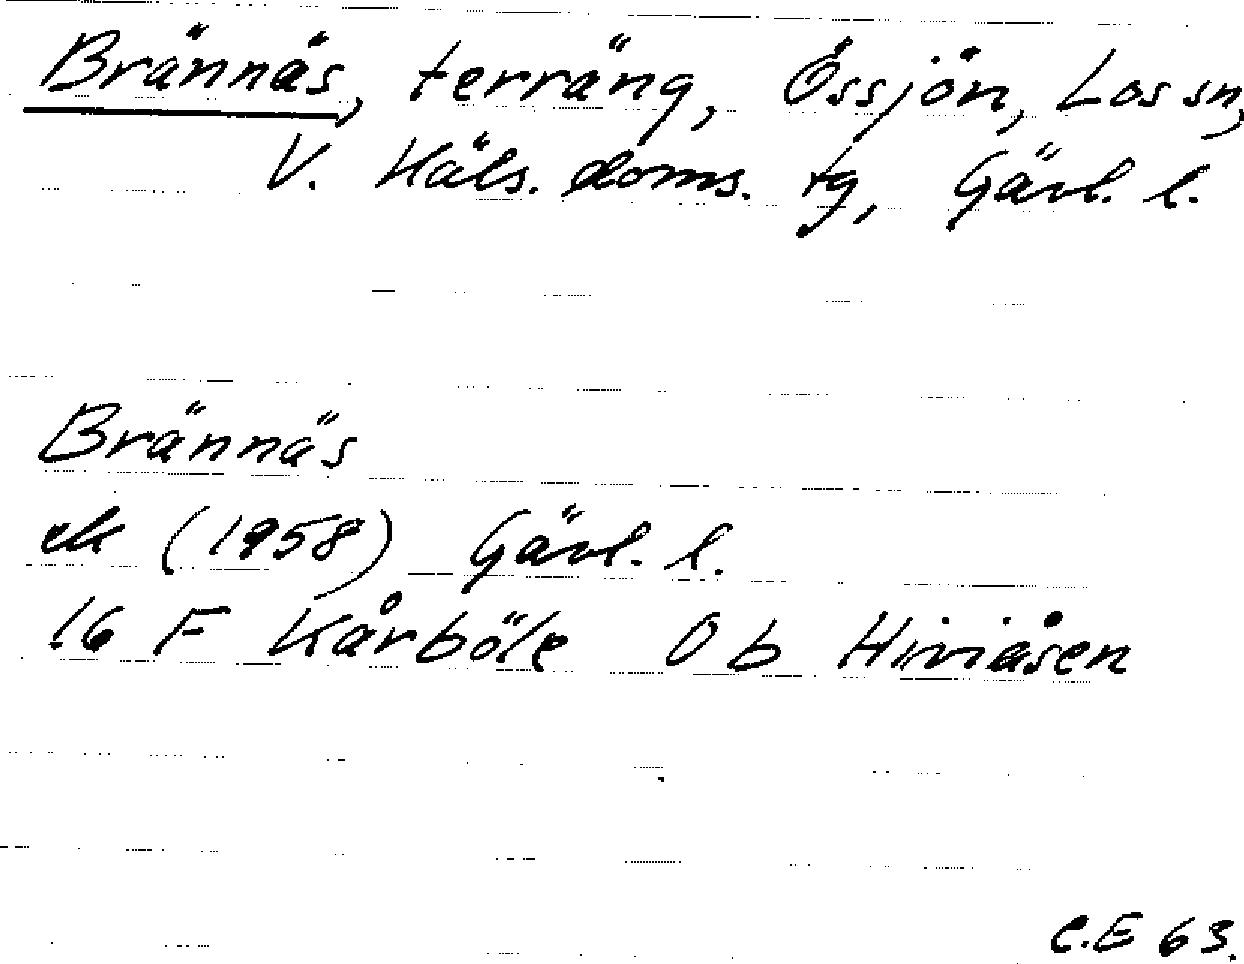 Brännäs, terräng, Össjön, Los sn,
V. Häls. doms. tg, Gävl. l.
Brännäs
ek (1958) Gävl. l.
16 F Kårböle 0 b Hiviåsen
C.E 63.